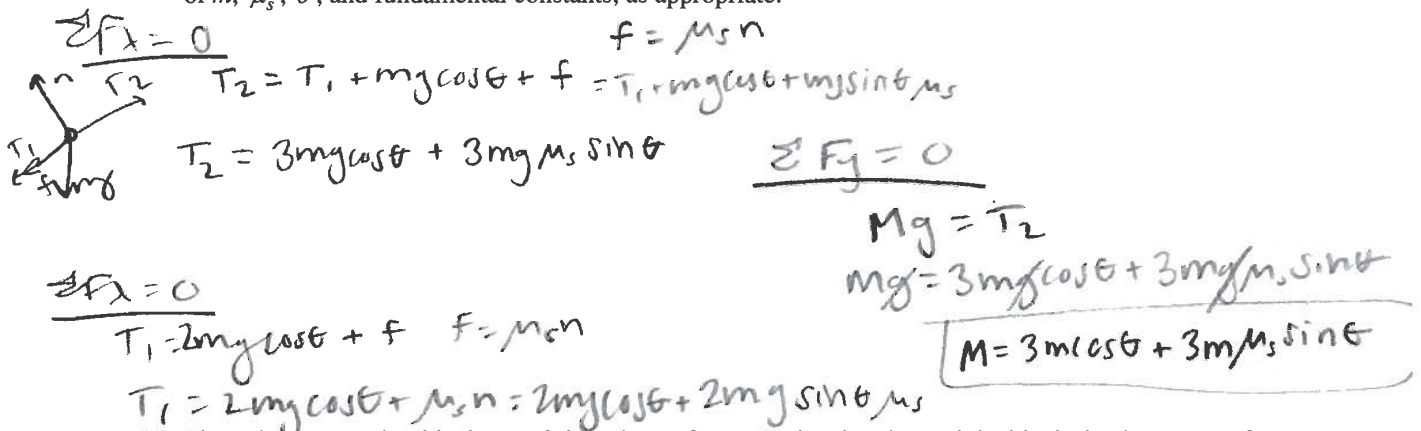 of m, μs, θ, and fundamental constants, as appropriate.
ΣFx = 0
f = μs n
n T2 T1 f mg
T2 = T1 + mg cosθ + f = T1 + mg cosθ + mg sinθ μs
T2 = 3mg cosθ + 3mg μs sinθ
ΣFy = 0
Mg = T2
Mg = 3mg cosθ + 3mg μs sinθ
M = 3m cosθ + 3m μs sinθ
ΣFx = 0
T1 = 2mg cosθ + f f = μs n
T1 = 2mg cosθ + μs n = 2mg cosθ + 2mg sinθ μs